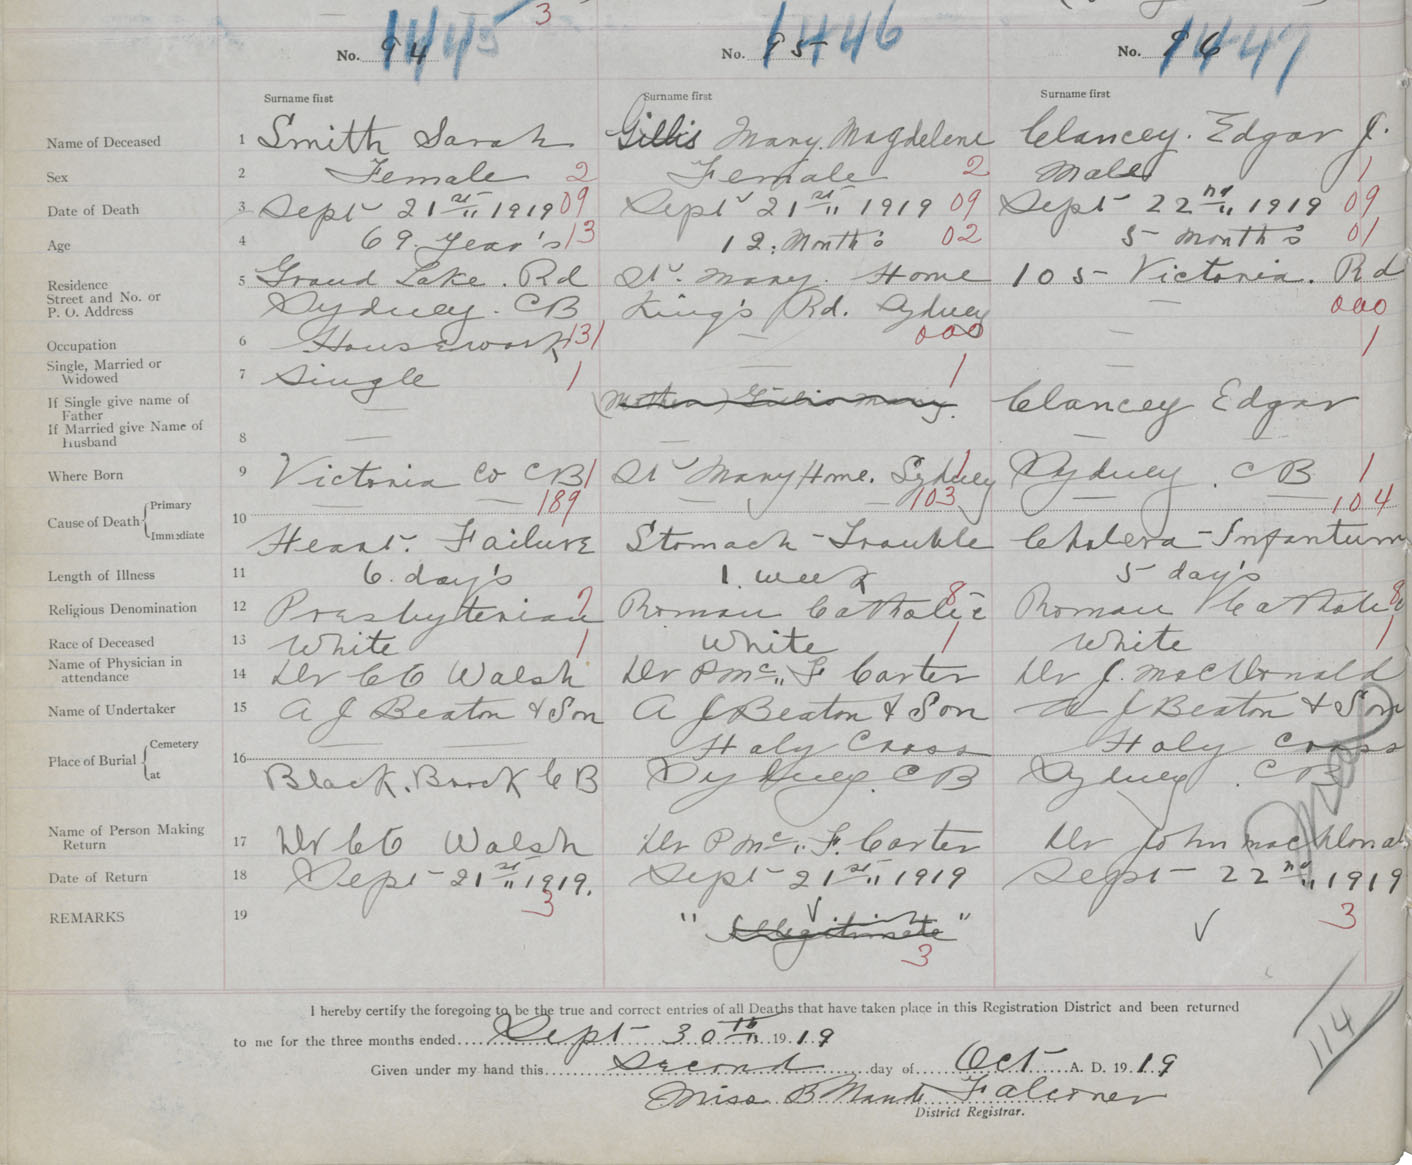 3
No. 94 1445 No. 95 1446 No. 96 1447
Surname first Surname first Surname first
Name of Deceased 1 Smith Sarah Gillis Mary Magdelene Clancey. Edgar J.
Sex 2 Female 2 Female 2 Male 1
Date of Death 3 Sept 21st 1919 09 Sept 21st 1919 09 Sept 22nd 1919 09
Age 4 69 Year's 13 12. Month's 02 5 month's 01
Residence 5 Grand Lake. Rd St. Mary. Home 105 Victoria. Rd
Street and No. or
P. O. Address Sydney. CB King's Rd. Sydney — 000
Occupation 6 Housework 131 — 000 — 1
Single, Married or
Widowed 7 Single 1 — 1
If Single give name of
Father — (Mother) Gillis Mary. Clancey Edgar
If Married give Name of
Husband 8 — — —
Where Born 9 Victoria Co CB 1 St Mary Home. Sydney 1 Sydney. CB 1
Cause of Death Primary 10 — 189 — 103 — 104
Immediate Heart. Failure Stomach-Trouble Cholera-Infantum
Length of Illness 11 6. day's 1. week 5 day's
Religious Denomination 12 Presbyterian 2 Roman Catholic 8 Roman Catholic 8
Race of Deceased 13 White 1 White 1 White 1
Name of Physician in
attendance 14 Dr CC Walsh Dr P Mc. F Carter Dr J. MacDonald
Name of Undertaker 15 A J Beaton & Son A J Beaton & Son A J Beaton & Son
Place of Burial Cemetery 16 — Holy Cross Holy Cross
at Black. Brook CB Sydney. CB Sydney. CB
Name of Person Making
Return 17 Dr CC Walsh Dr P Mc. F. Carter Dr John MacDonal
Date of Return 18 Sept 21st 1919. Sept 21st 1919 Sept 22nd 1919
3 3
REMARKS 19 "Illegitimate"
3
I hereby certify the foregoing to be the true and correct entries of all Deaths that have taken place in this Registration District and been returned
to me for the three months ended Sept 30th 1919
Given under my hand this Second day of Oct A. D. 1919
Miss B Maude Falconer
District Registrar.
114